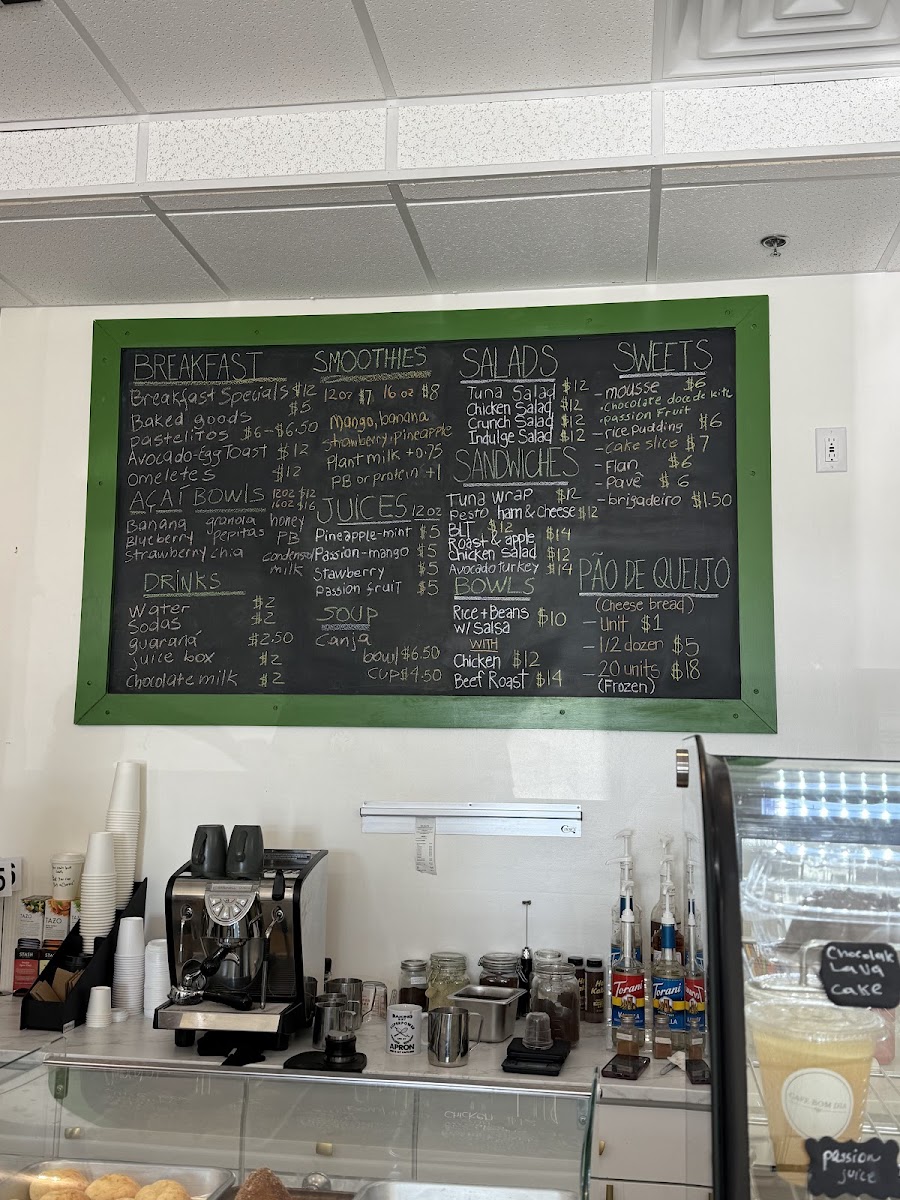 BREAKFAST
Breakfast Specials $12
Baked goods $5
pastelitos $6-$6.50
Avocado-Egg Toast $12
Omeletes $12
AÇAÍ BOWLS 12oz $12
16oz $16
Banana granola honey
Blueberry pepitas PB
Strawberry chia condensed
milk
DRINKS
Water $2
Sodas $2
guaraná $2.50
juice box $2
Chocolate milk $2
SMOOTHIES
12oz $7 16oz $8
Mango, banana
strawberry, pineapple
Plant milk +0.75
PB or protein +1
JUICES 12oz
Pineapple-mint $5
Passion-mango $5
Stawberry $5
passion fruit $5
SOUP
Canja
bowl $6.50
cup $4.50
SALADS
Tuna Salad $12
Chicken Salad $12
Crunch Salad $12
Indulge Salad $12
SANDWICHES
Tuna wrap $12
Pesto ham & cheese $12
BLT $12
Roast & apple $14
Chicken salad $12
Avocado turkey $14
BOWLS
Rice + Beans $10
w/ Salsa
WITH
Chicken $12
Beef Roast $14
SWEETS
- mousse $6
• Chocolate • doce de leite
• passion Fruit
- rice pudding $6
- cake slice $7
- Flan $6
- pavê $6
- brigadeiro $1.50
PÃO DE QUEIJO
(Cheese bread)
- Unit $1
- 1/2 dozen $5
- 20 units $18
(Frozen)
TAZO
TAZO
STASH
STASH
APRON
Torani
Torani
Chocolate
Lava
Cake
CAFE BOM DIA
passion
juice